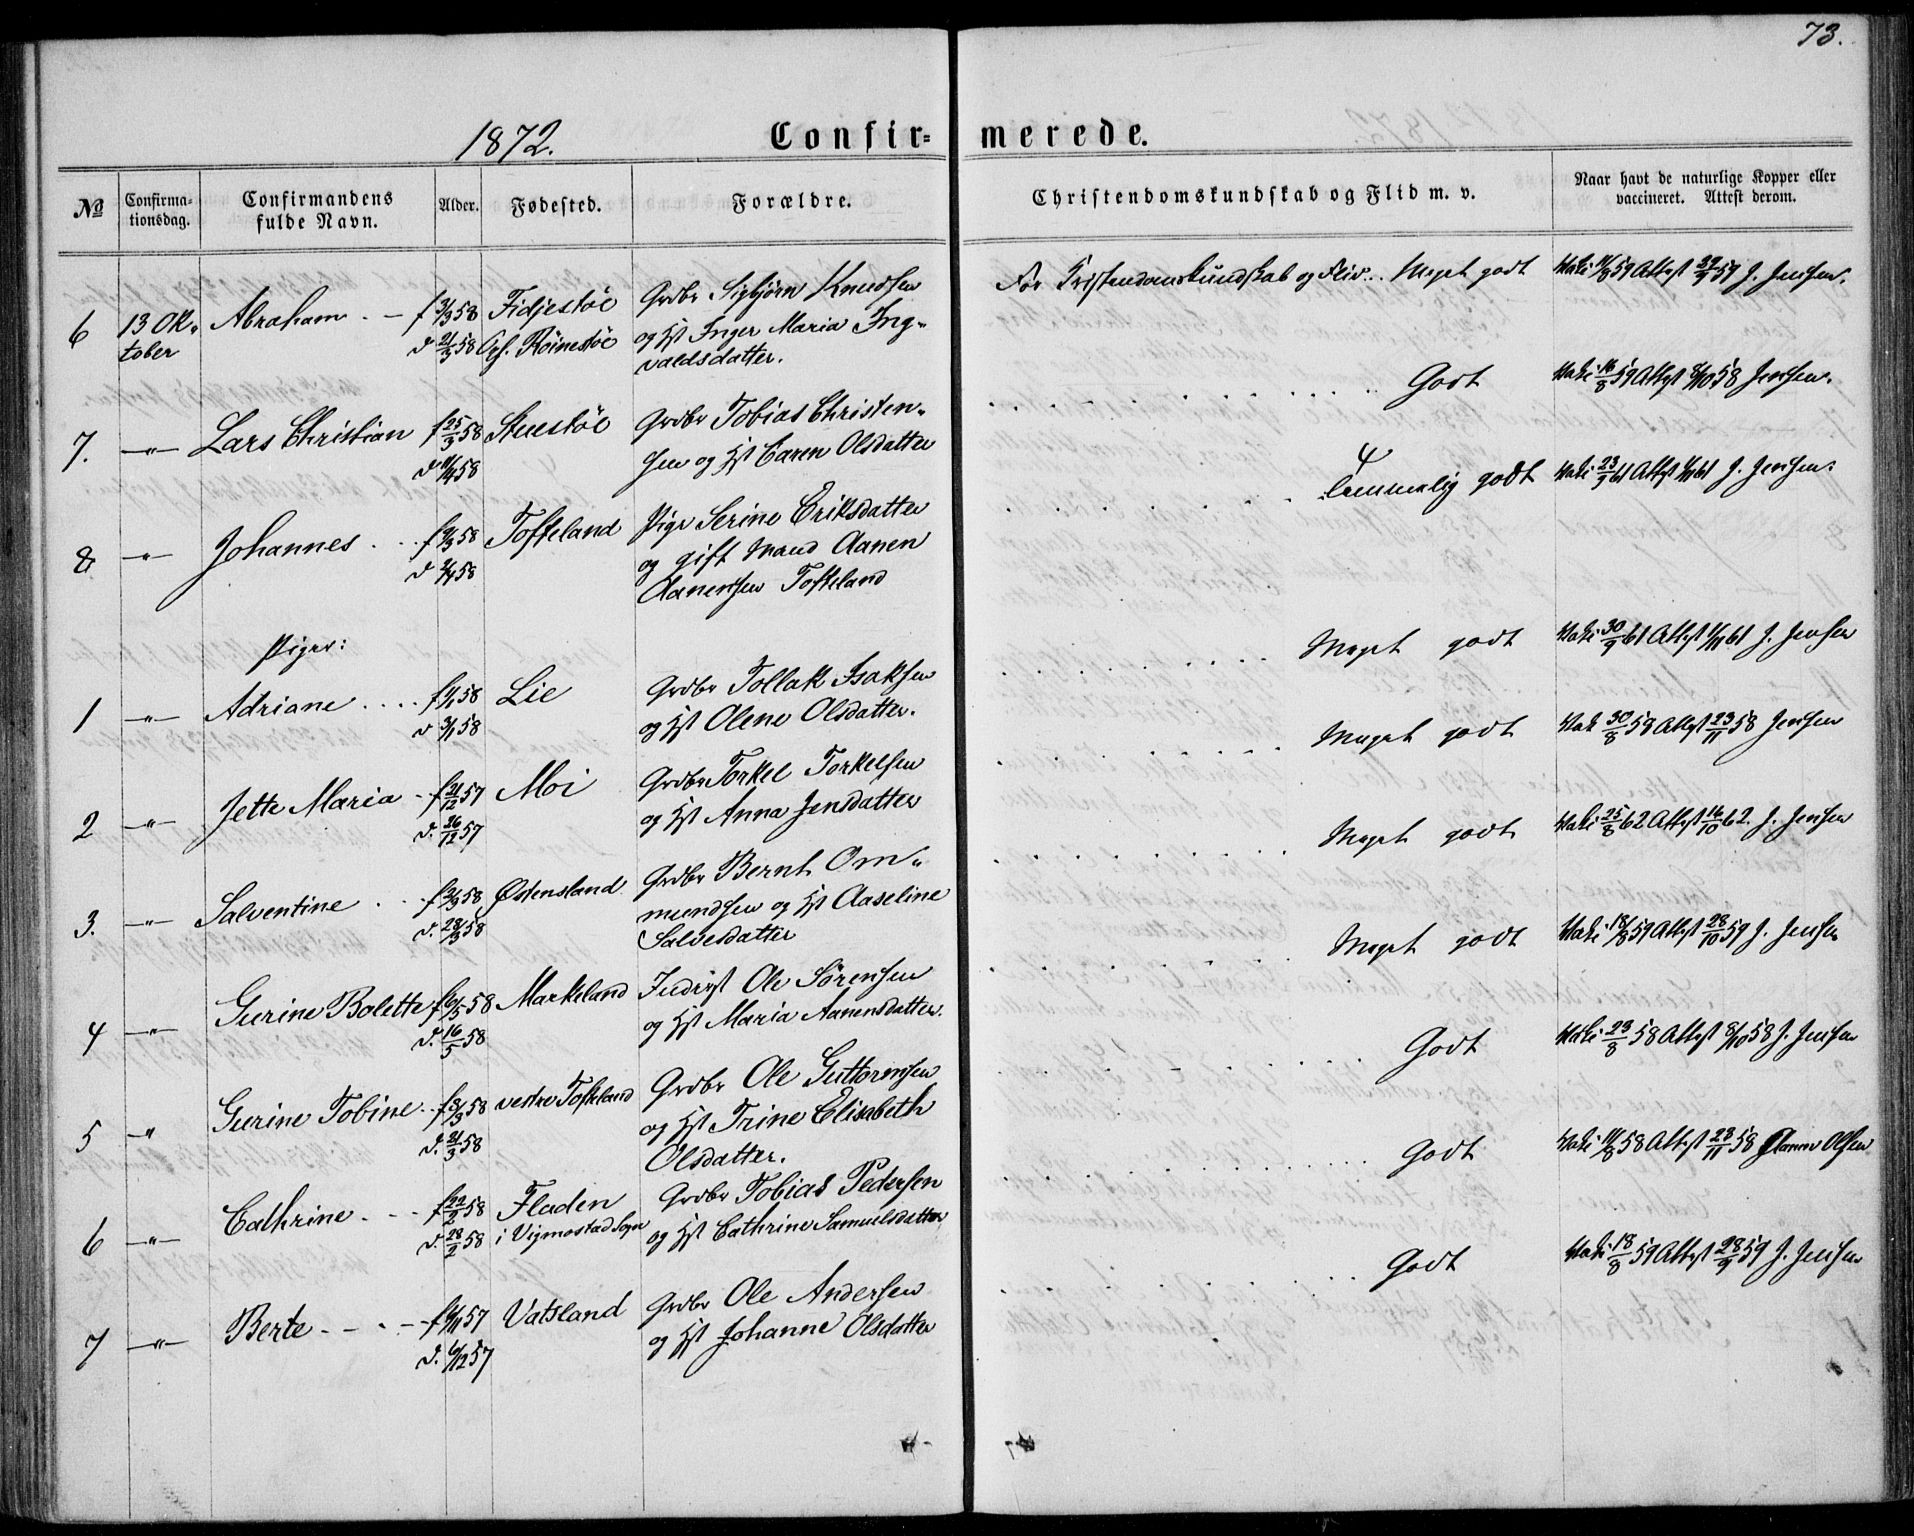 73.
1872.
Confir=
merede.
No
Confirma-
tionsdag.
Confirmandens
fulde Navn.
Alder.
Fødested.
Forældre.
Christendomskundskab og Flid m. v.
Naar havt de naturlige Kopper eller
vaccineret. Attest derom.
6 13 Ok- Abraham f 3/3 58 Fidjestöe Grdbr Sigbjörn Knudsen
tober d 21/3 58 Röinestöe og Hst Inger Maria Ing-
valdsdatter.
For Kristendomskundskab og Flid.. Meget godt
59 Attest 59 J. Jensen.
7. -"- Lars Christian f 25/3 58 Stuestöe Grdbr Tobias Christen-
d 11/4 58 sen og Hst Caren Olsdatter
Godt
Vaki 16/8 59 Attest 8/10 58 Jensen.
8 -"- Johannes f 58 Tofteland Pige Serine Eriksdatter
d 58 og gift Mand Aanen
Aanensen Tofteland
Temmelig godt
Vaki 23/9 61 Attest 1/11 61 J. Jensen.
Piger:
1 -"- Adriane f 1/1 58 Lie Grdbr Tollak Isaksen
d 3/1 58 og Hst Olene Olsdatter.
Meget godt
Vaki 30/9 61 Attest 1/11 61 J. Jensen
2 -"- Jette Maria f 21/12 57 Moi Grdbr Torkel Torkelsen
d. 26/12 57 og Hst Anna Jensdatter
Meget godt
Vak 30/8 59 Attest 23/11 58 Jensen
3. -"- Salventine f 3/3 58 Østensland Grdbr Bernt Om-
d. 28/3 58 mundsen og Hst Aaseline
Salvesdatter
Meget godt
Vaki 25/8 62 Attest 16/10 62. J. Jensen
4 -"- Gurine Bolette f 6/5 58 Markeland Inderst Ole Sörensen
d. 16/5 58 og Hst Maria Aanensdatter.
Meget godt
Vaki 18/8 59 Attest 28/10 59 J. Jensen
5 -"- Gurine Tobine f 8/3 58 vestre Tofteland Grdbr Ole Guttormsen
d. 21/3 58 og Hst Trine Elisabeth
Olsdatter.
Godt
Vaki 23/8 58 Attest 8/10 58 J. Jensen
6 -"- Cathrine f 22/2 58 Fladen Grdbr Tobias Pedersen
d. 28/2 58 i Vigmostad Sogn og Hst Cathrine Samuelsdatter
Godt
Vaki 11/8 58 Attest 28/11 58 Olsen
7 -"- Berte f 57 Vatsland Grdbr Ole Andersen
d. 6/12 57 og Hst Johanne Olsdatter
Godt
Vaki 18/8 59 Attest 28/9 59 J. Jensen